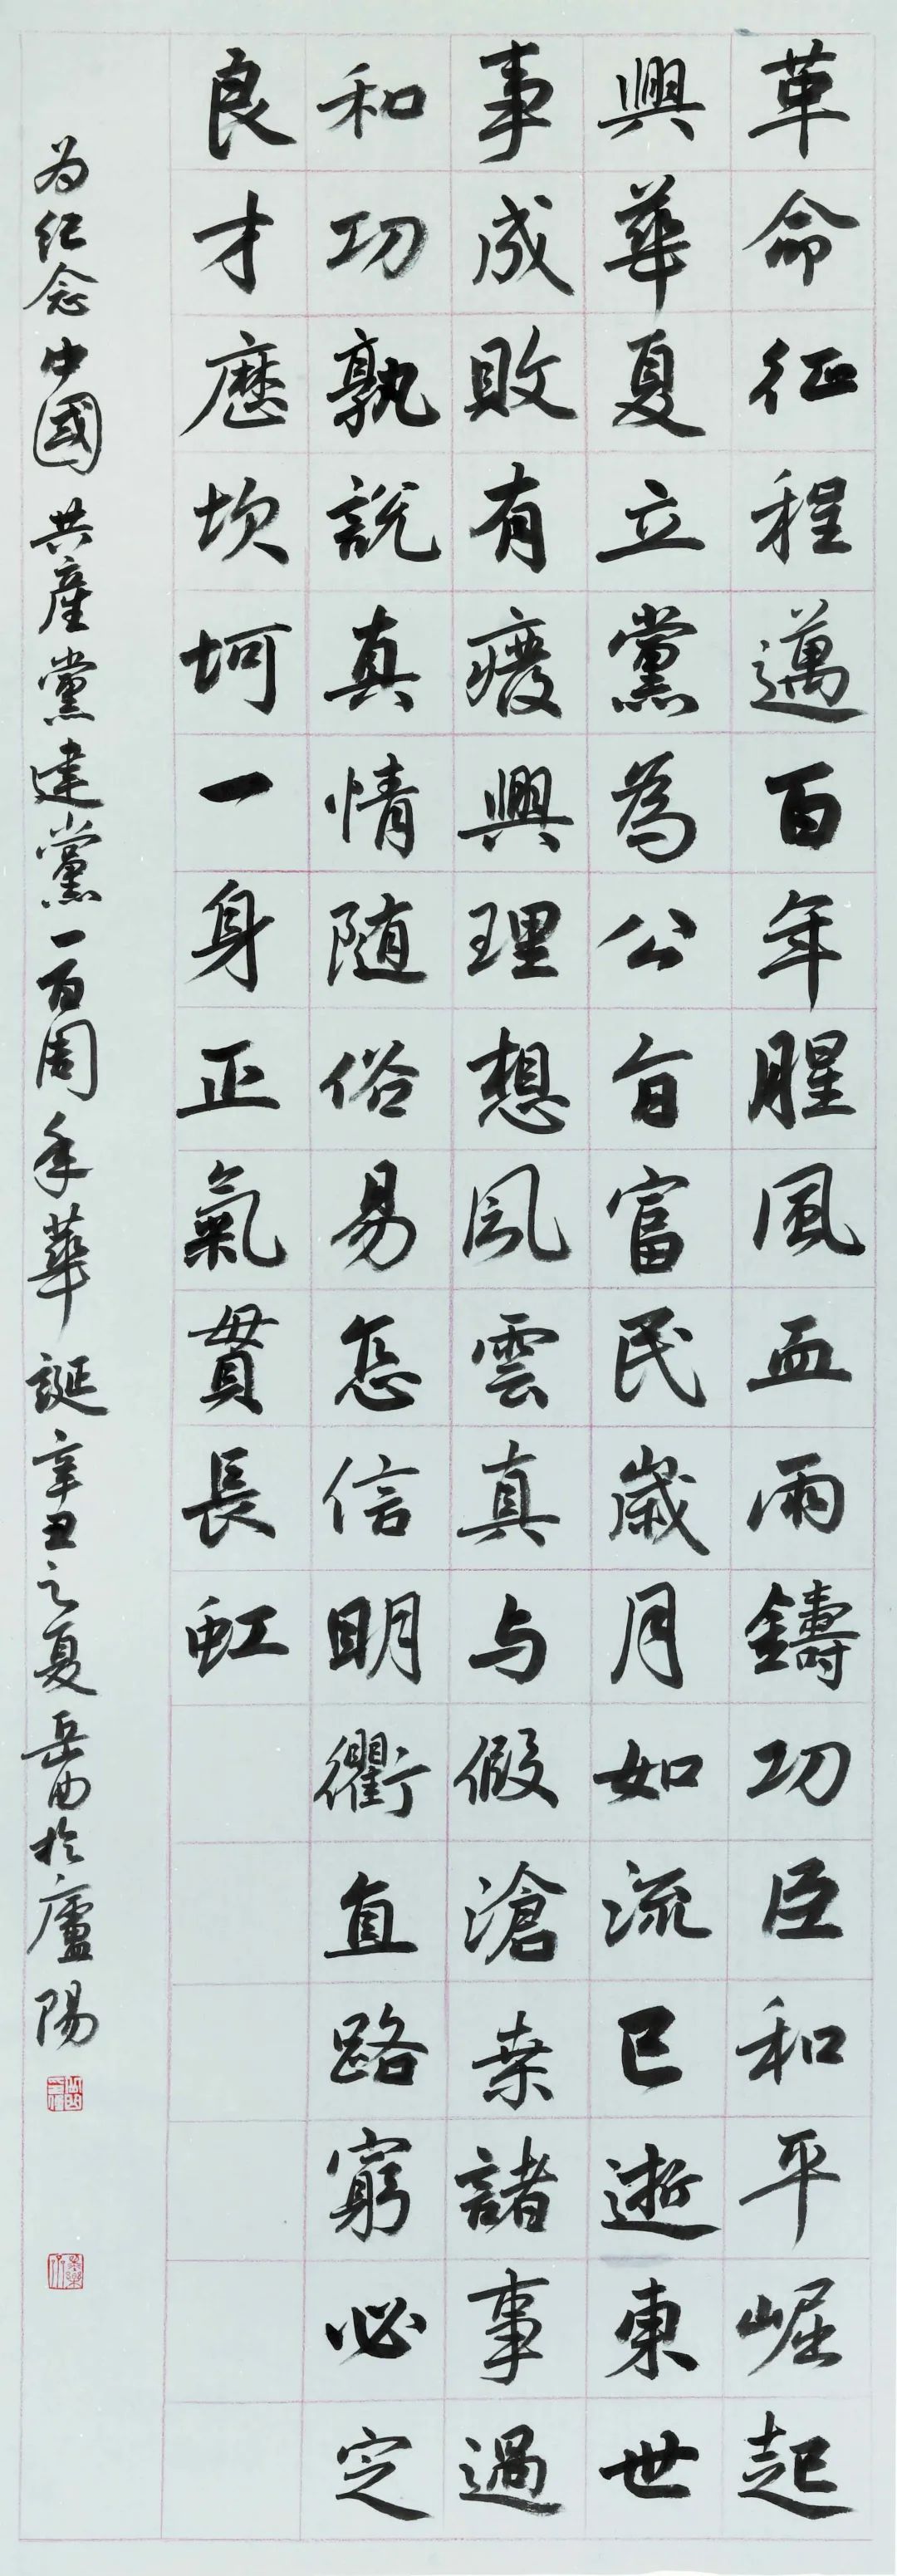 革命征程邁百年腥風血雨鑄功臣和平崛起
興華夏立黨為公旨富民歲月如流已逝東世
事成敗有癈興理想風雲真与假滄桒諸事過
和功孰說真情随俗易怎信明衢直路窮必定
良才歷坎坷一身正氣貫長虹
为纪念中國共產黨建黨一百周年華誕辛丑之夏岳西於廬陽